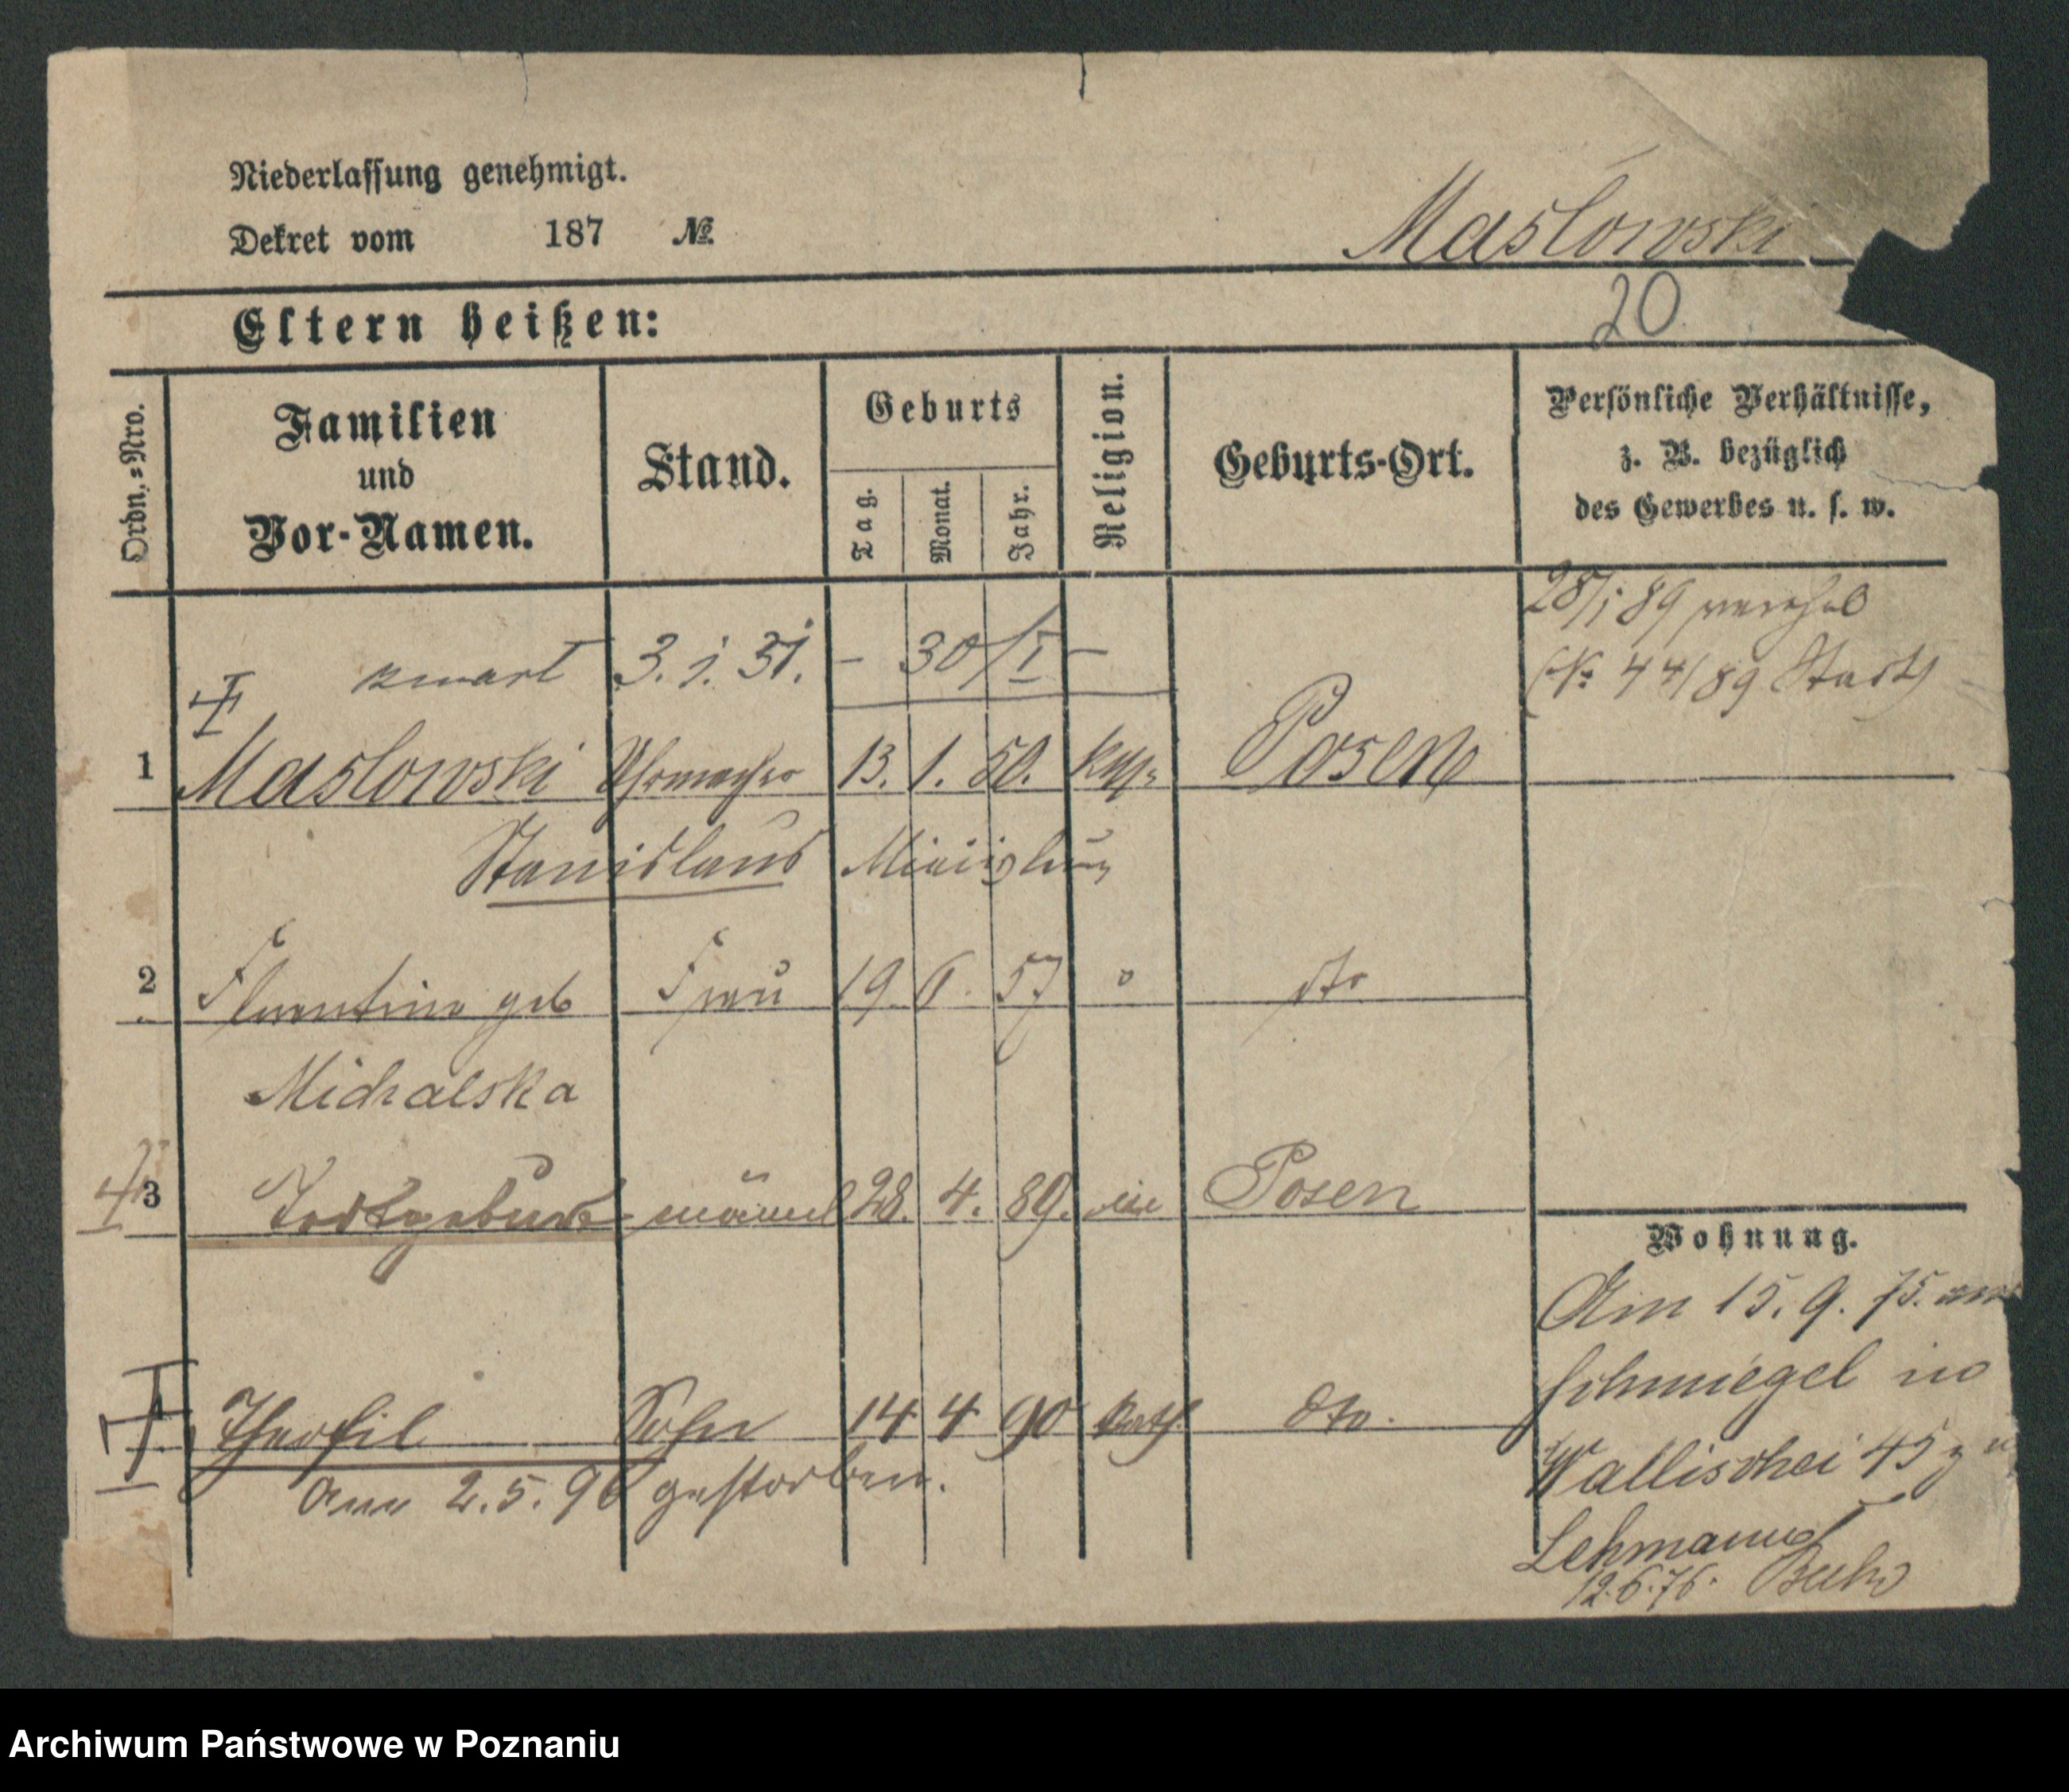 Niederlassung genehmigt.
Dekret vom 187 №
Maslowski
20
Eltern heißen:
Ordn.=Nro.
Familien und Vor-Namen.
Stand.
Geburts
Tag.
Monat.
Jahr.
Religion.
Geburts-Ort.
Persönliche Verhältnisse,
z. B. bezüglich
des Gewerbes u. s. w.
28/1 89
(N: 44/89 Start)
zmarł 3. 1. 31. – 30/I –
1 Maslowski Uhrmacher 13. 1. 50. kath. Posen
Stanislaus
2 Florentine geb Frau 19. 6. 57 dto
Michalska
3 Todtgeburt männl 28. 4. 89. Posen
Theofil Sohn 14 4 90 kath. dto.
am 2. 5. 96 gestorben.
Wohnung.
Am 15. 9. 75. aus
Schmiegel in
Wallischei 45
Lehmann
12. 6. 76.
Archiwum Państwowe w Poznaniu